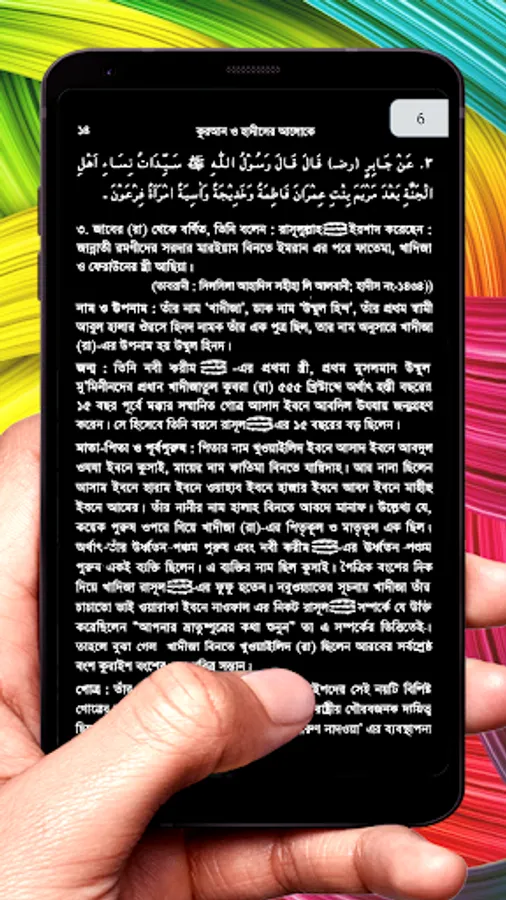 6
১৪ কুরআন ও হাদীসের আলোকে
٣. عَنْ جَابِرٍ (رضـ) قَالَ قَالَ رَسُوْلُ اللّٰهِ ﷺ سَيِّدَاتُ نِسَاءِ اَهْلِ
الْجَنَّةِ بَعْدَ مَرْيَمَ بِنْتِ عِمْرَانَ فَاطِمَةُ وَخَدِيْجَةُ وَآسِيَةُ امْرَأَةُ فِرْعَوْنَ -
৩. জাবের (রা) থেকে বর্ণিত, তিনি বলেন : রাসূলুল্লাহ ইরশাদ করেছেন :
জান্নাতী রমণীদের সরদার মারইয়াম বিনতে ইমরান এর পরে ফাতেমা, খাদিজা
ও ফেরাউনের স্ত্রী আছিয়া।
(তাবরানী : সিলসিলা আহাদিস সহীহা লি আলবানী; হাদীস নং-১৪৩৪))
নাম ও উপনাম : তাঁর নাম 'খাদীজা', ডাক নাম 'উম্মুল হিন্দ', তাঁর প্রথম স্বামী
আবুল হালার ঔরসে হিনদ নামক তাঁর এক পুত্র ছিল, তার নাম অনুসারে খাদীজা
(রা)-এর উপনাম হয় উম্মুল হিনদ।
জন্ম : তিনি নবী করীম -এর প্রথমা স্ত্রী, প্রথম মুসলমান উম্মুল
মু'মিনীনদের প্রধান খাদীজাতুল কুবরা (রা) ৫৫৫ খ্রিষ্টাব্দে অর্থাৎ হস্তী বছরের
১৫ বছর পূর্বে মক্কার সম্মানিত গোত্র আসাদ ইবনে আবদিল উযযায় জন্মগ্রহণ
করেন। সে হিসেবে তিনি বয়সে রাসূল এর ১৫ বছরের বড় ছিলেন।
মাতা-পিতা ও পূর্বপুরুষ : পিতার নাম খুওয়াইলিদ ইবনে আসাদ ইবনে আবদুল
ওযযা ইবনে কুসাই, মায়ের নাম ফাতিমা বিনতে যায়িদাহ। আর নানা ছিলেন
আসাম ইবনে হারাম ইবনে ওয়াহাব ইবনে হাজার ইবনে আবদ ইবনে মাহীছ
ইবনে আমের। তাঁর নানীর নাম হালাহ বিনতে আবদে মানাফ। উল্লেখ্য যে,
কয়েক পুরুষ ওপরে গিয়ে খাদীজা (রা)-এর পিতৃকুল ও মাতৃকুল এক ছিল।
অর্থাৎ-তাঁর উর্ধ্বতন-পঞ্চম পুরুষ এবং নবী করীম -এর উর্ধ্বতন -পঞ্চম
পুরুষ একই ব্যক্তি ছিলেন। এ ব্যক্তির নাম ছিল কুসাই। পৈত্রিক বংশের দিক
দিয়ে খাদিজা রাসূল -এর ফুফু হতেন। নবুওয়াতের সূচনায় খাদীজা তাঁর
চাচাতো ভাই ওয়ারাকা ইবনে নাওফাল এর নিকট রাসূল সম্পর্কে যে উক্তি
করেছিলেন "আপনার ভ্রাতুষ্পুত্রের কথা শুনুন" তা এ সম্পর্কের ভিত্তিতেই।
তাহলে বুঝা গেল খাদীজা বিনতে খুওয়াইলিদ (রা) ছিলেন আরবের সর্বশ্রেষ্ঠ
বংশ কুরাইশ বংশের সন্তান।
গোত্র : তাঁর সেই নয়টি বিশিষ্ট
গোত্রের রাষ্ট্রীয় গৌরবজনক দায়িত্ব
নাদওয়া' এর ব্যবস্থাপনা